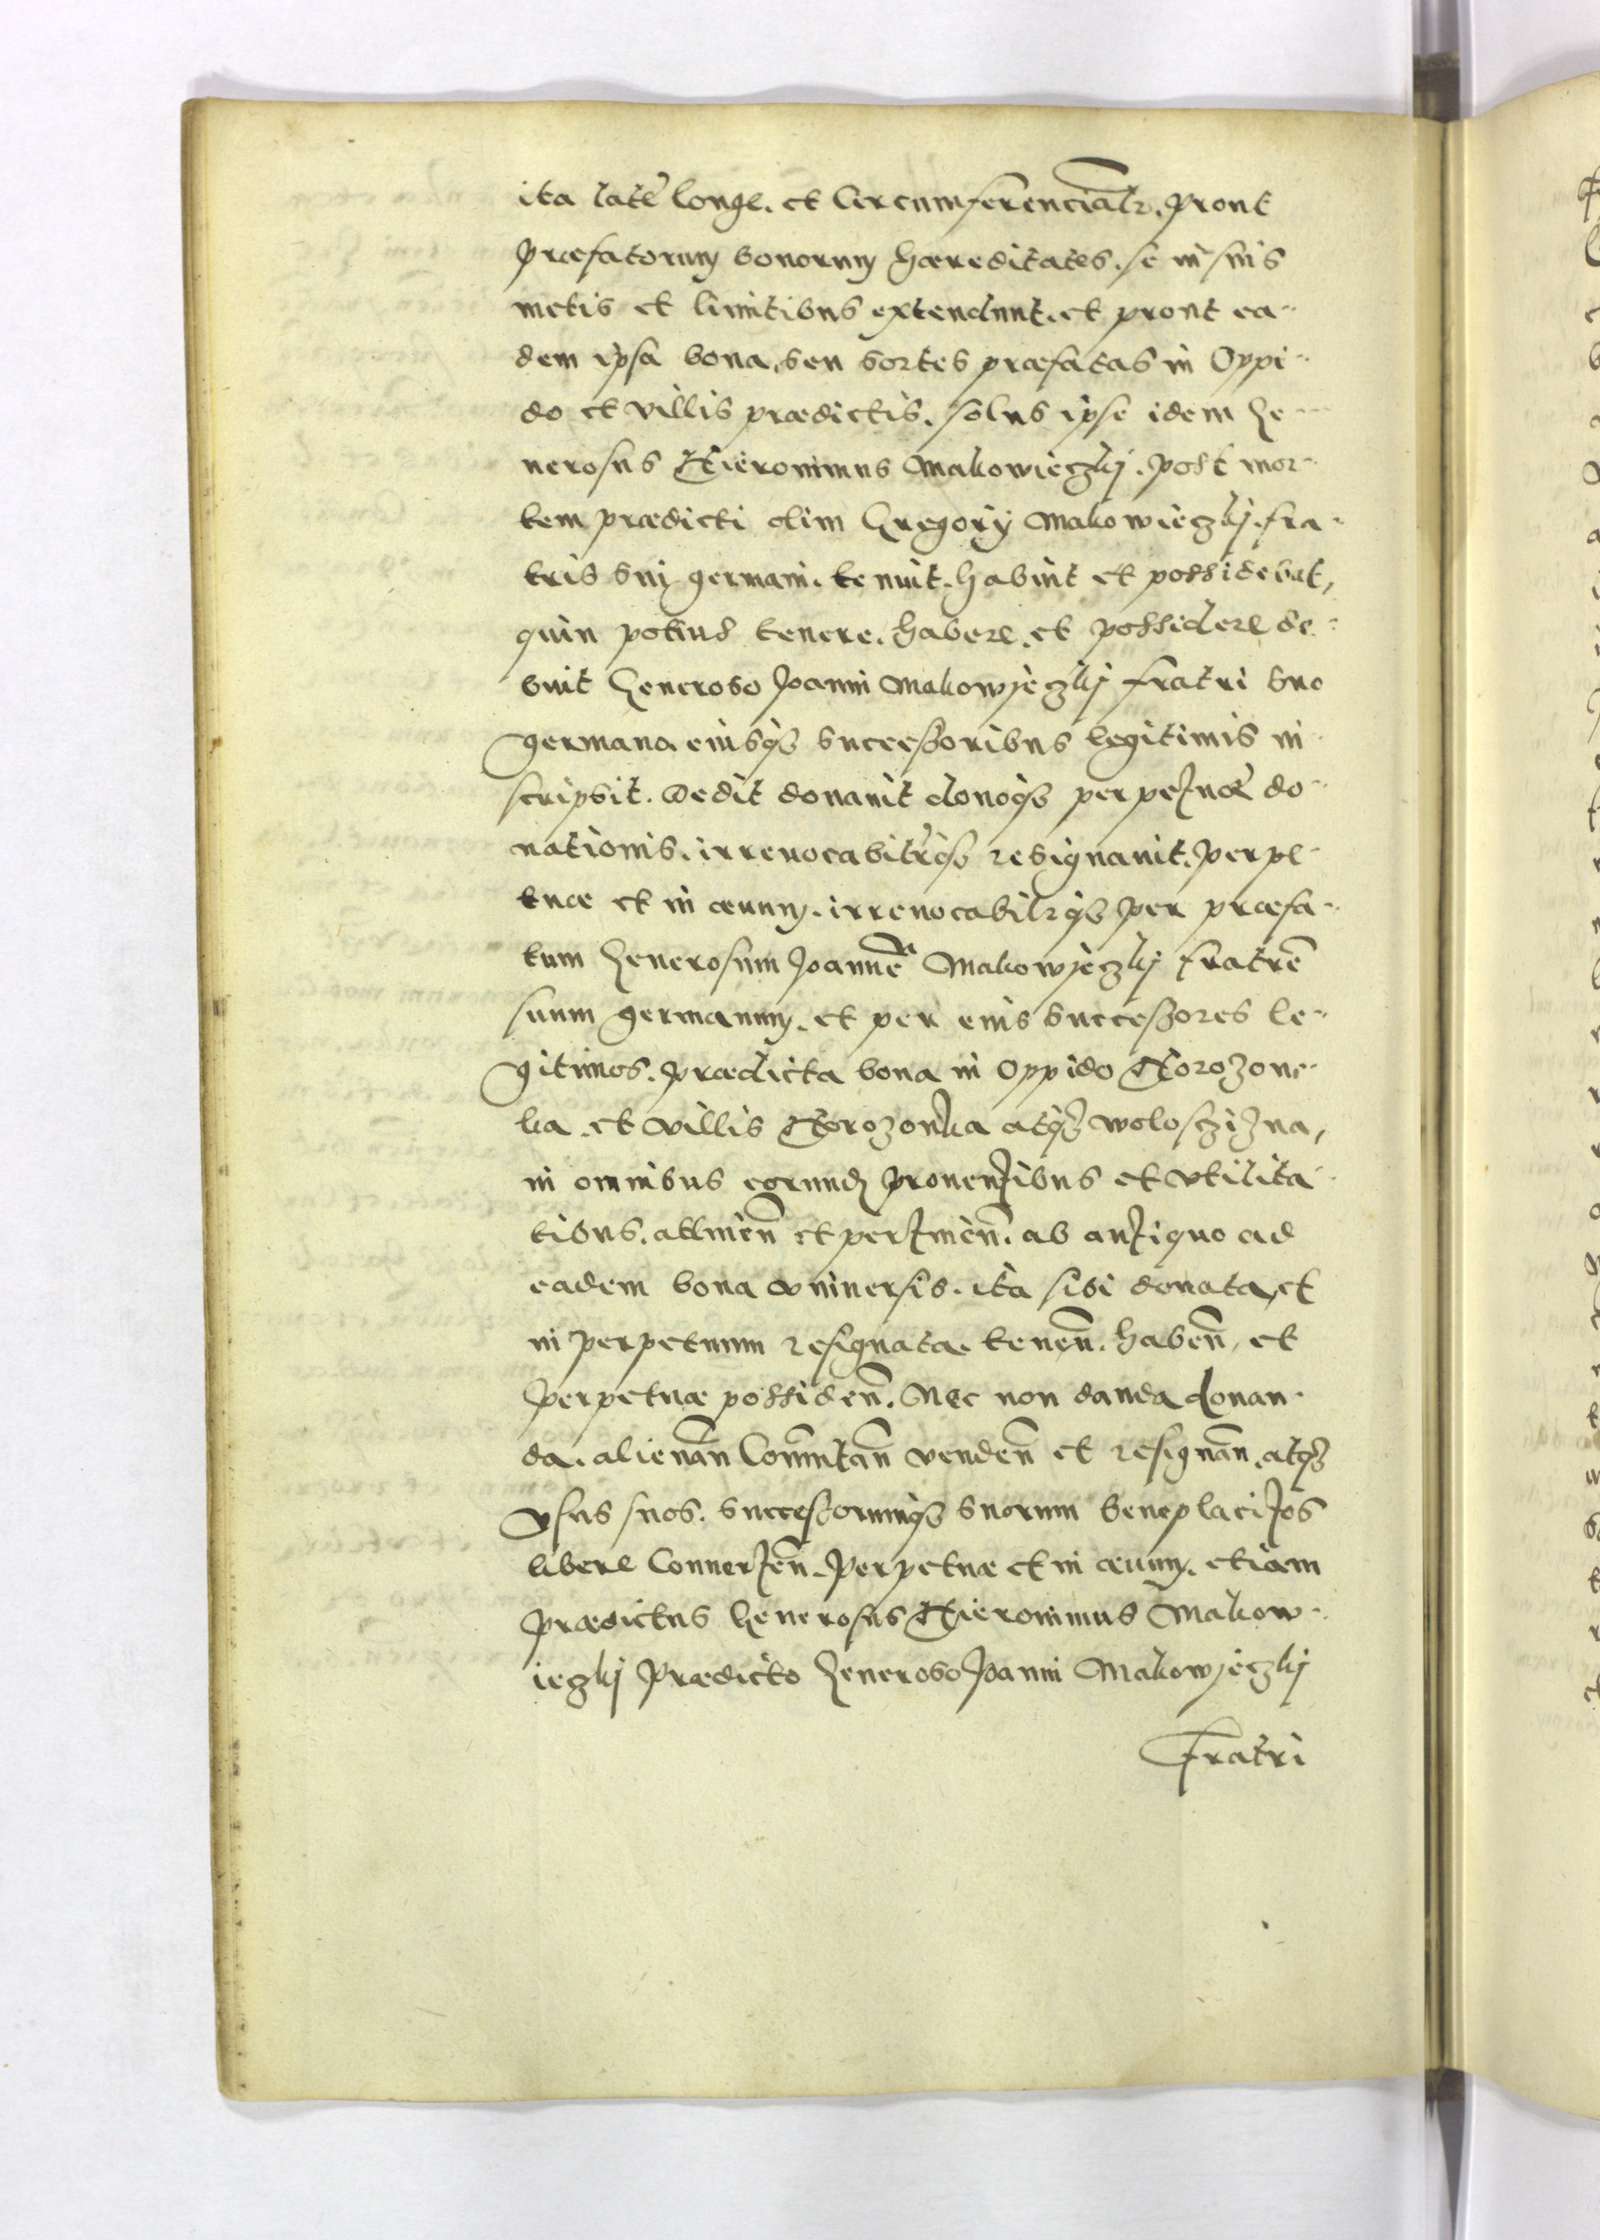 ita late longe. et Circumferencialr. prout
præfatorum bonorum hæreditates. se in suis
metis et limitibus extendunt. et prout ea-
dem ipsa bona, seu sortes præfatas in Oppi-
do et villis prædictis. solus ipse idem Ge-
nerosus Hieronimus Makowieczkj. post mor-
tem prædicti olim Gregorij Makowieczkj. fra-
tris sui germani. tenuit. habuit et possidebat,
quin potius tenere. habere. et possidere de-
buit Generoso Joanni Makowyeczkj fratri suo
germano eiusqз successoribus legitimis in
scripsit. Dedit donauit donoqз perpetuæ do-
nationis. irreuocabitrqз resignauit. perpe-
tuæ et in æuum. irreuocabilrqз per præfa-
tum Generosum Joannē Makowyeczkj fratrē
suum germanum. et per eius successores le-
gitimos. prædicta bona in oppido Horozone-
ka. et villis Horozonka atqз woloscziзna,
in omnibus eorund prouentibus et vtilita-
tibus. attineñ et pertineñ. ab antiquo ad
eadem bona vniuersis. ita sibi donata, et
in perpetuum resignata. teneñ. habeñ, et
perpetuæ possideñ. Nec non danda donan-
da. alienañ Commutañ vendeñ et resignañ. atqз
vsus suos. successorumqз suorum beneplacitos
libere Conuerteñ. Perpetuæ et in æuum. etiam
prædictus Generosus Hieronimus Makow-
ieczkj prædicto Generoso Joanni Makowyeczkj
Fratri